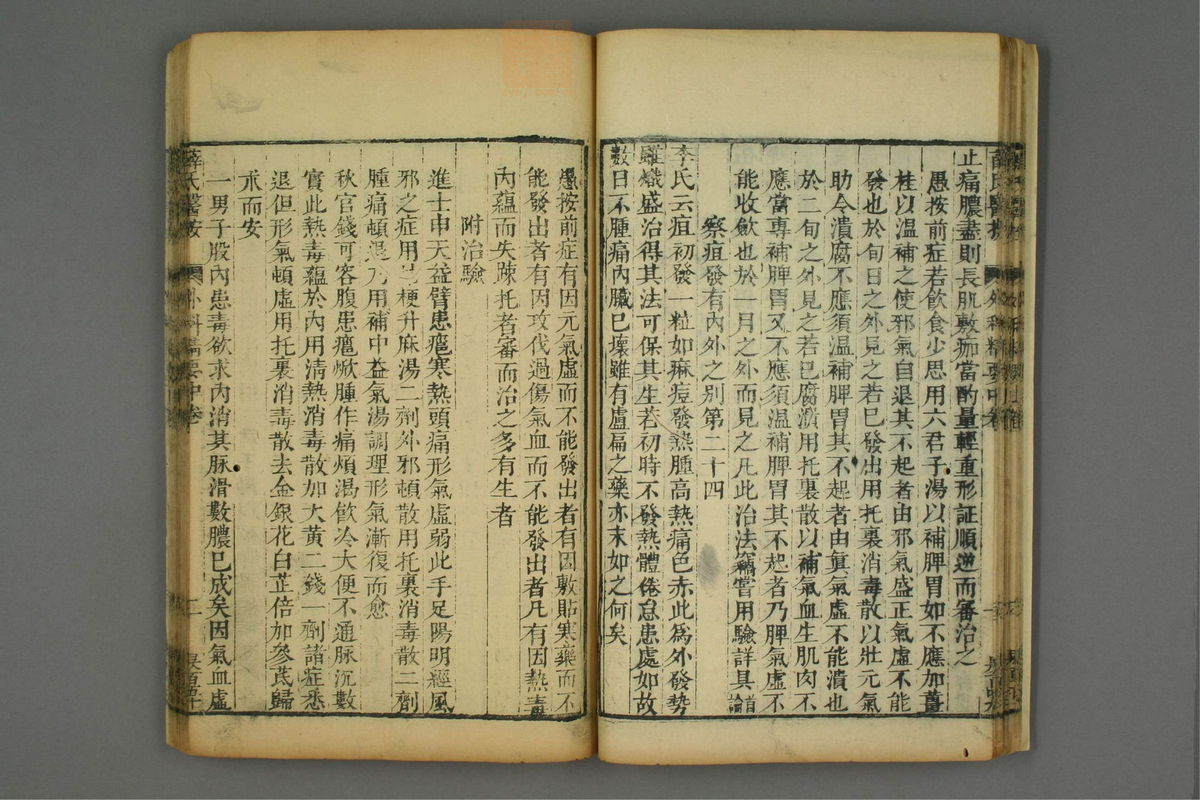 止痛膿盡則長肌敷痂當酌量輕重形証順逆而審治之
愚按前症若飲食少思用六君子湯以補脾胃如不應加薑
桂以溫補之使邪氣自退其不起者由邪氣盛正氣虛不能
發也於旬日之外見之若已發出用托裏消毒散以壯元氣
助令潰腐不應須溫補脾胃其不起者由眞氣虛不能潰也
於二旬之外見之若已腐潰用托裏散以補氣血生肌肉不
應當專補脾胃又不應須溫補脾胃其不起者乃脾氣虛不
能收斂也於一月之外而見之凡此治法竊嘗用驗詳具首論
察疽發有內外之別第二十四
李氏云疽初發一粒如麻痘發熱腫高熱痛色赤此爲外發勢
雖熾盛治得其法可保其生若初時不發熱體倦怠患處如故
數日不腫痛內臟已壞雖有盧扁之藥亦末如之何矣
愚按前症有因元氣虛而不能發出者有因敷貼寒藥而不
能發出者有因攻伐過傷氣血而不能發出者凡有因熱毒
內蘊而失疎托者審而治之多有生者
附治驗
進士申天益臂患癰寒熱頭痛形氣虛弱此手足陽明經風
邪之症用梗升麻湯二劑外邪頓散用托裏消毒散二劑
腫痛頓退乃用補中益氣湯調理形氣漸復而愈
秋官錢可容腹患癰焮腫作痛煩渴飲冷大便不通脉沉數
實此熱毒蘊於內用清熱消毒散加大黃二錢一劑諸症悉
退但形氣頓虛用托裏消毒散去金銀花白芷倍加參芪歸
朮而安
一男子股內患毒欲求內消其脉滑數膿已成矣因氣血虛
薛氏醫按 外科精要中卷